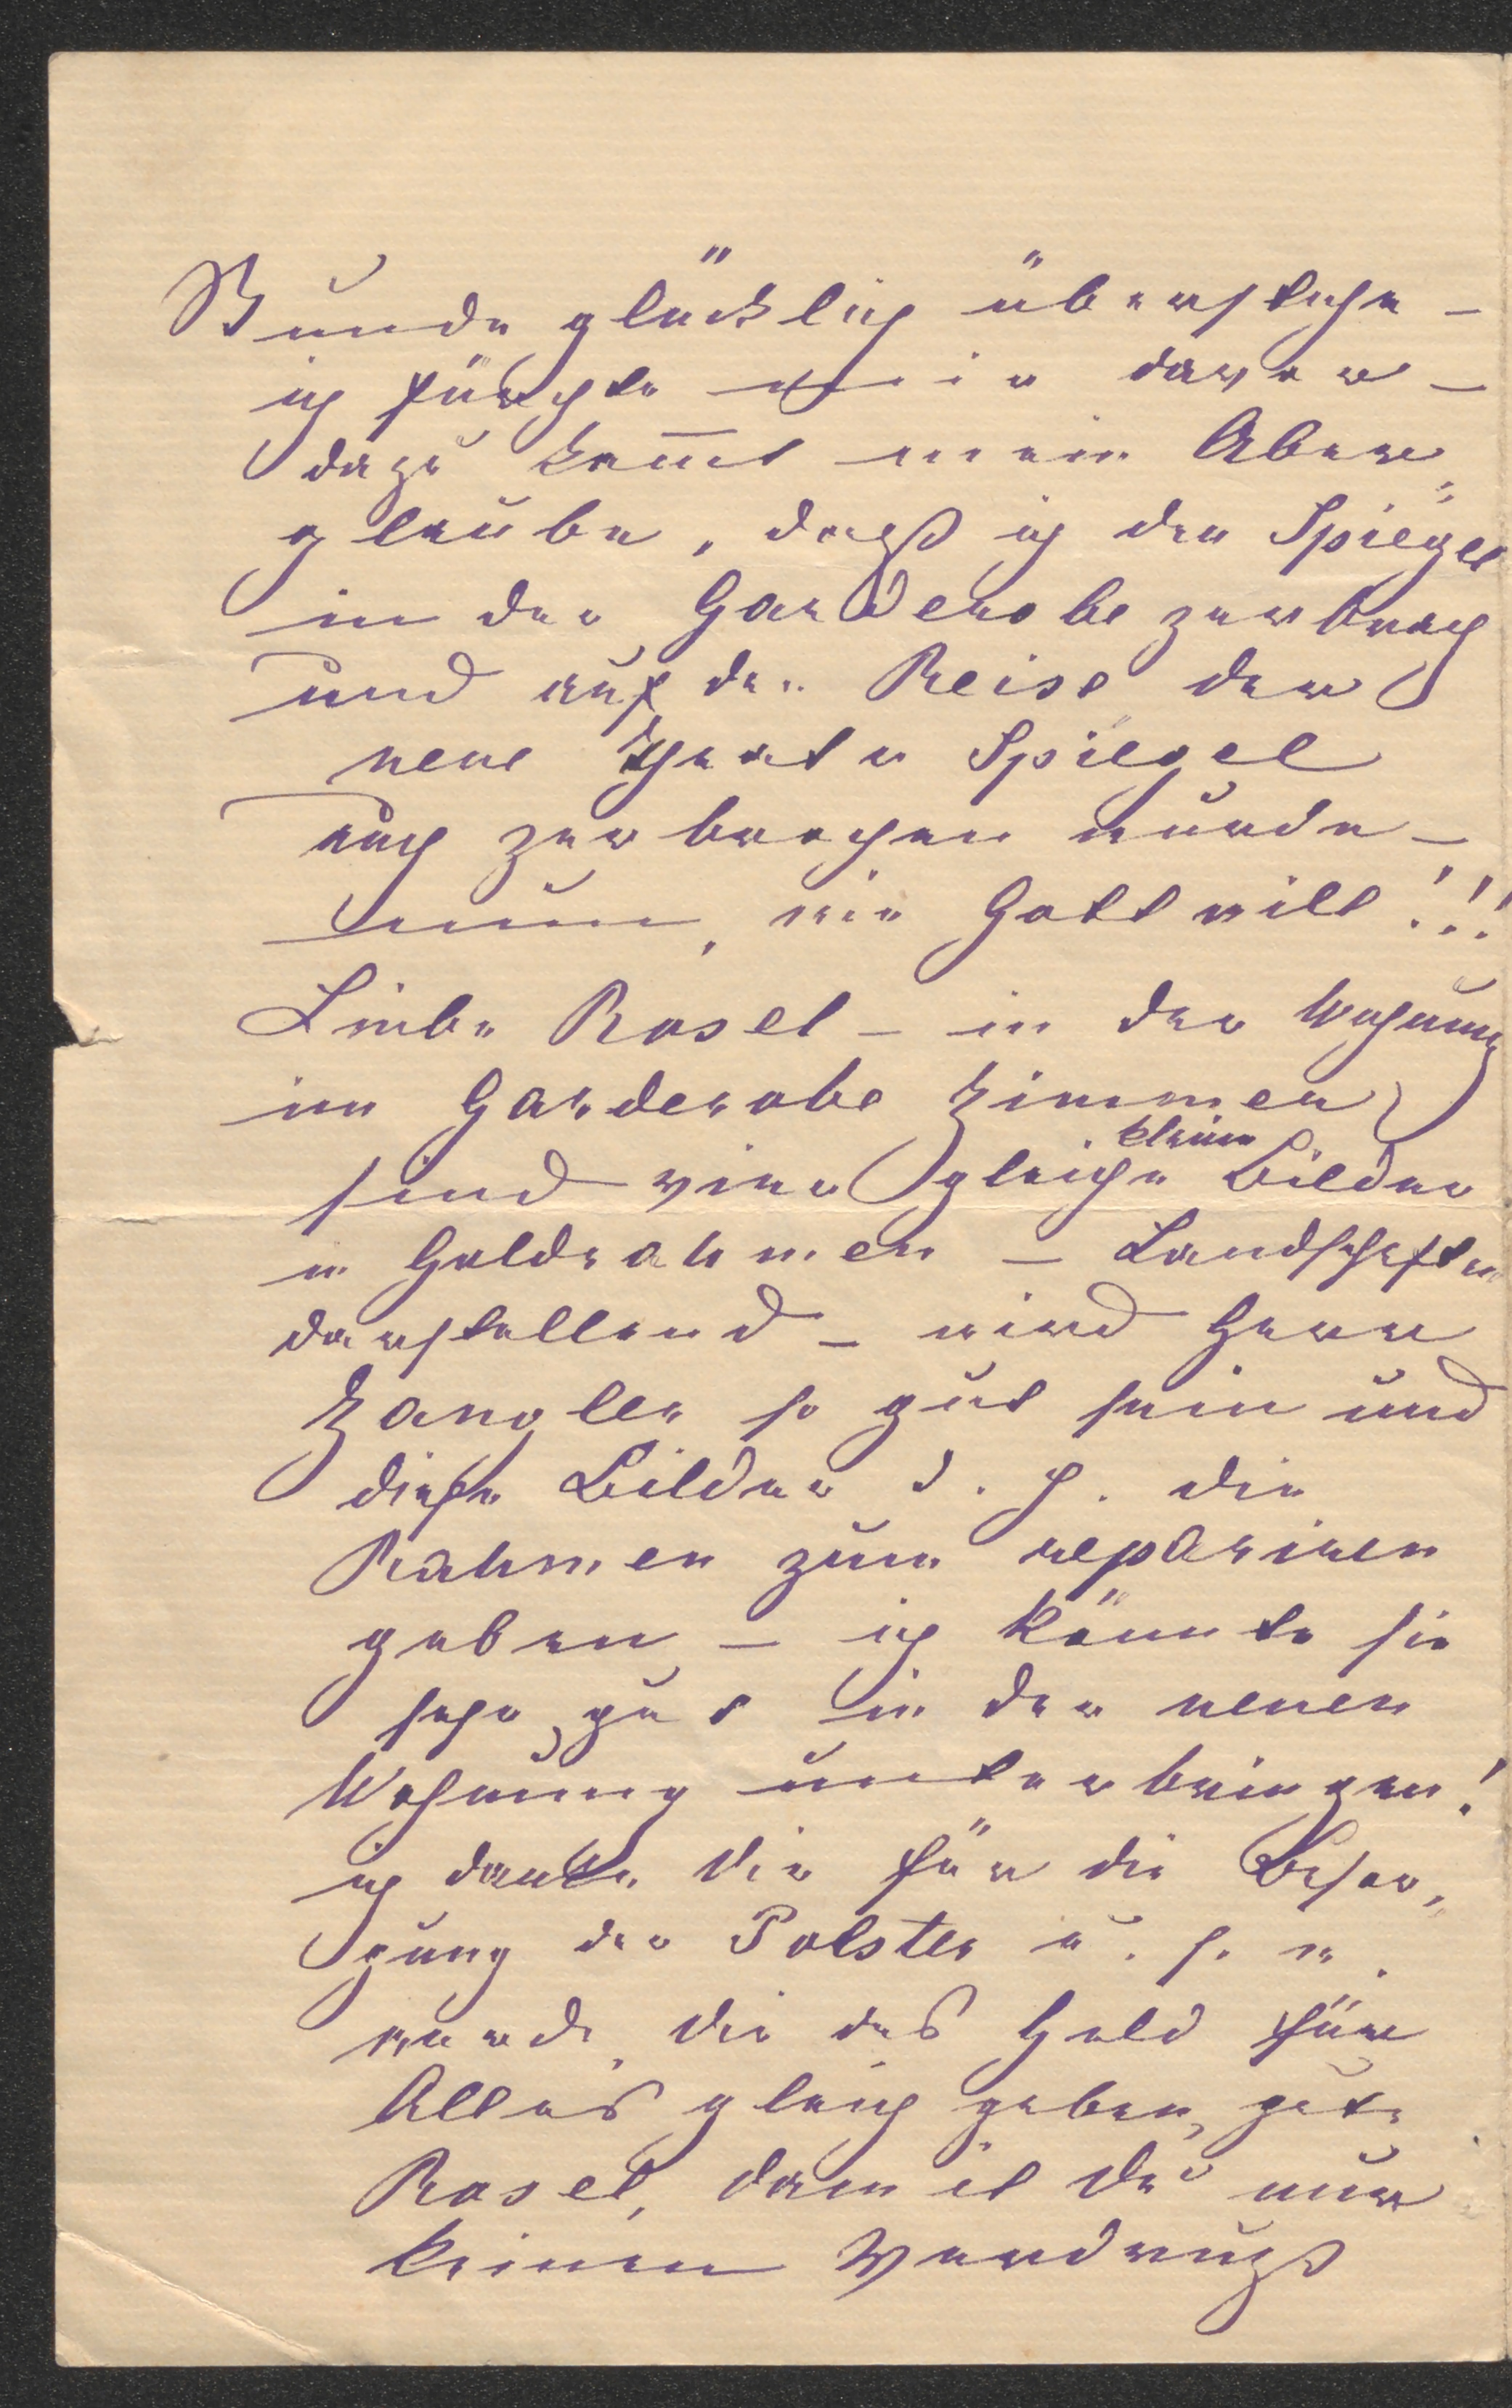 Stunde glücklich überstehe –
ich fürchte mich davor –
dazu kom̅t mein Aber„
glaube, daß ich den Spiegel
in der Garderobe zerbrach
und auf der Reise der
neue Theater Spiegel
auch zerbrochen wurde –
nun, wie Gott will!!!
Liebe Rosel – in der Wohnung
im Garderobe Zimmer
sind vier gleiche kleine Bilder
in Goldrahmen – Landschaften
darstellend – wird Herr
Zangler so gut sein und
diese Bilder d. h. die
Rahmen zum repariren
geben – ich könnte sie
sehr gut in der neuen
Wohnung unterbringen!
ich danke dir für die Besor„
gung der Polster u. s. w.
werde dir das Geld für
Alles gleich geben, gute
Rosel, damit du nur
keinen Verdruß